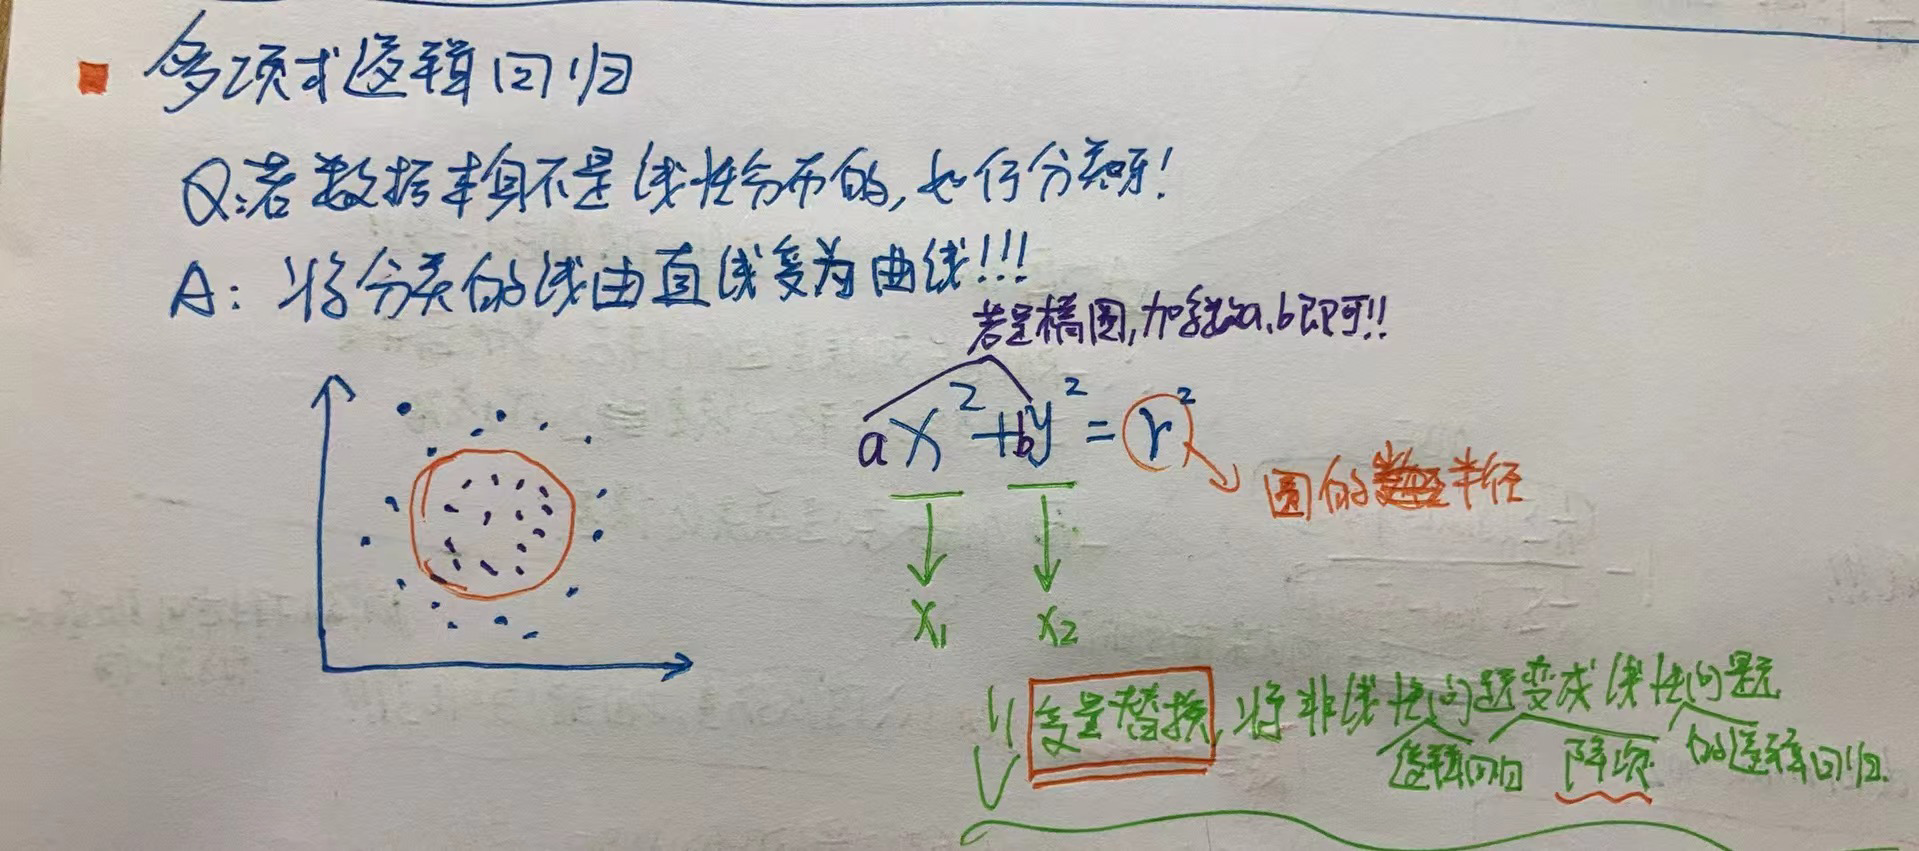 多项式逻辑回归
Q:若数据本身不是线性分布的,如何分类呀!
A:将分类的线由直线变为曲线!!!
若是橢圆,加系数a、b即可!!
ax²+by²=r²
圆的半径
x₁ x₂
变量替换,将非线性问题变成线性问题
逻辑回归 降项 的逻辑回归.